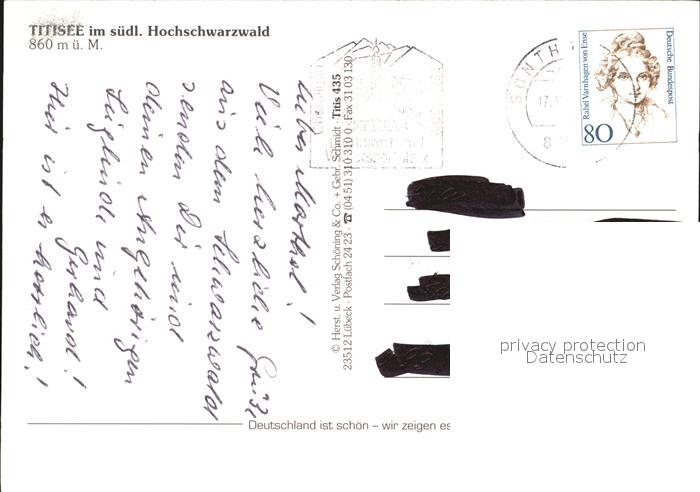 TITISEE im südl. Hochschwarzwald
860 m ü. M.
Lieber Manthal!
Viele herzliche Grüße
aus dem Schwarzwald
senden Dir und
deinen Angehörigen
Siglinde und
Gerhard!
Hier ist es herrlich!
© Herst. u. Verlag Schöning & Co. + Gebr. Schmidt · Titis 435
23512 Lübeck · Postfach 24 23 · ☎ (04 51) 310 310 0 · Fax 31 03 130
SONTH
17.
8
Rahel Varnhagen von Ense
Deutsche Bundespost
80
privacy protection
Datenschutz
Deutschland ist schön – wir zeigen es